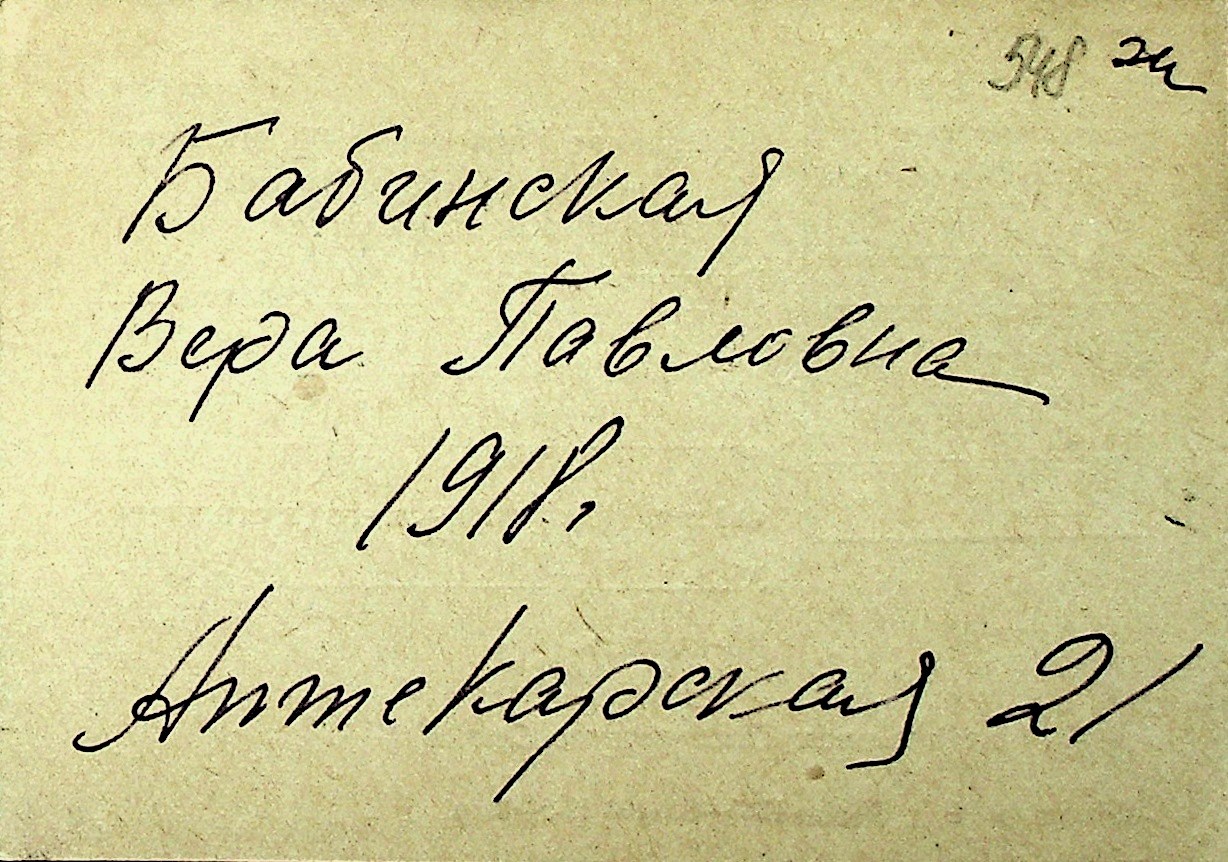 548
Бабинская
Вера Павловна
1918.
Аптекарская 21